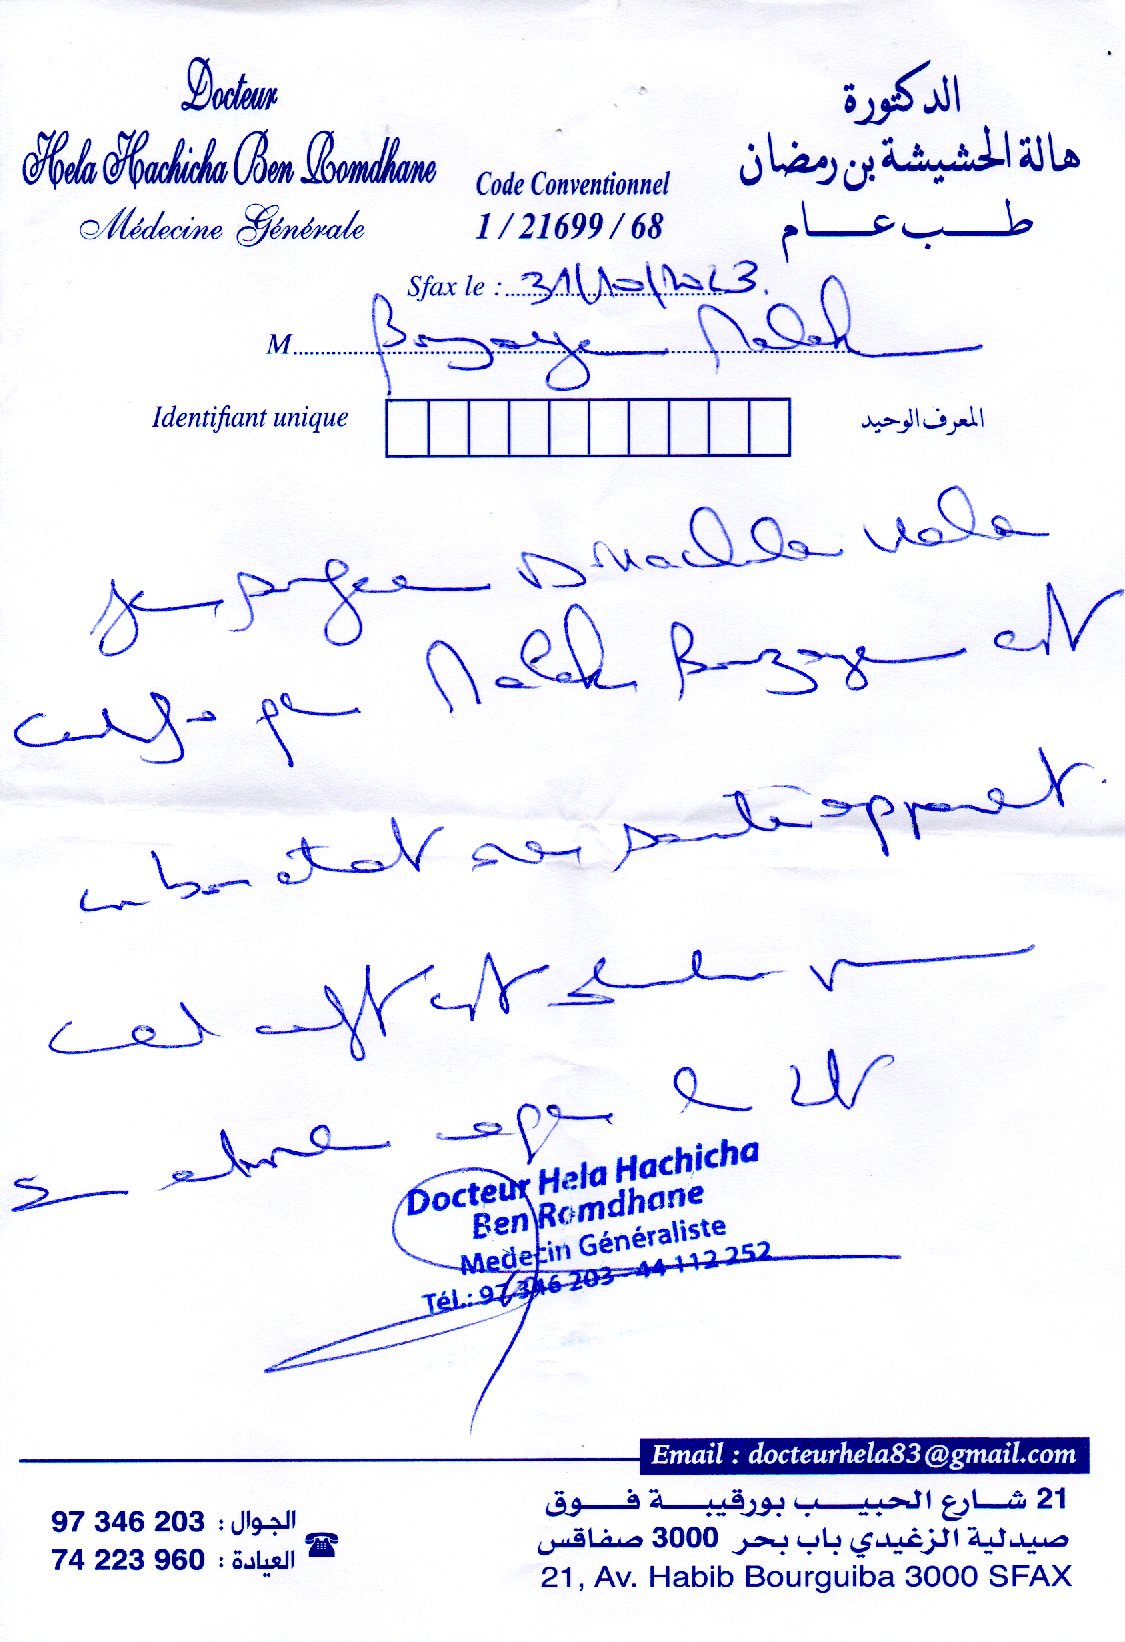 Docteur
Hela Hachicha Ben Romdhane
Médecine Générale
Code Conventionnel
1 / 21699 / 68
الدكتورة
هالة الحشيشة بن رمضان
طب عام
Sfax le : 31/10/2023.
M Bouzayen Malek
Identifiant unique
المعرف الوحيد
Je soussignée Dr Hachicha Hela
certifie que Malek Bouzayen est
en bon état de santé apparent.
Cet certificat est
le
Docteur Hela Hachicha
Ben Romdhane
Medecin Généraliste
Tél.: 97 346 203 - 44 112 252
Email : docteurhela83@gmail.com
97 346 203 : الجوال
74 223 960 : العيادة
21 شارع الحبيب بورقيبة فوق
صيدلية الزغيدي باب بحر 3000 صفاقس
21, Av. Habib Bourguiba 3000 SFAX